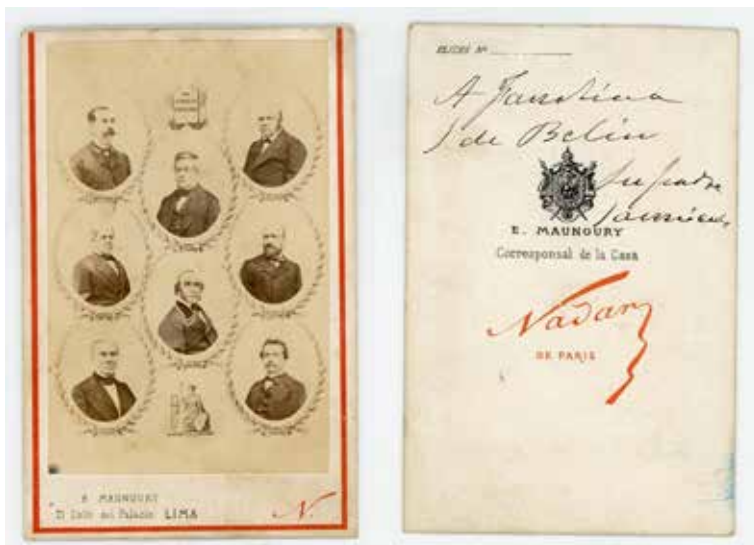 E. MAUNOURY
Calle del Palacio LIMA
N.
CLICHÉ Nº
A Faustina
S de Belin
su padre
Sarmiento
E. MAUNOURY
Corresponsal de la Casa
Nadar
DE PARIS